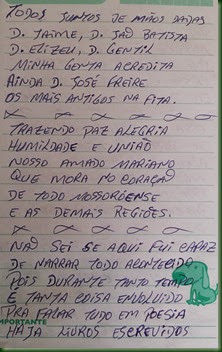 TODOS JUNTOS DE MÃOS DADAS
D. JAIME, D. JÃO BATISTA
D. ELIZEU, D. GENTIL
MINHA GENTA ACREDITA
AINDA D. JOSÉ FREIRE
OS MAIS ANTIGOS NA FITA.
TRAZENDO PAZ ALEGRIA
HUMILDADE E UNIÃO
NOSSO AMADO MARIANO
QUE MORA NO CORAÇÃO
DE TODO MOSSORÓENSE
E AS DEMAIS REGIÕES.
NÃO SEI SE AQUI FUI CAPAZ
DE NARRAR TODO ACONTECIDO
POIS DURANTE TANTO TEMPO
E TANTA COISA ENVOLVIDO
PRA FALAR TUDO EM POESIA
MPORTANTE
HAJA LIVROS ESCREVIDOS